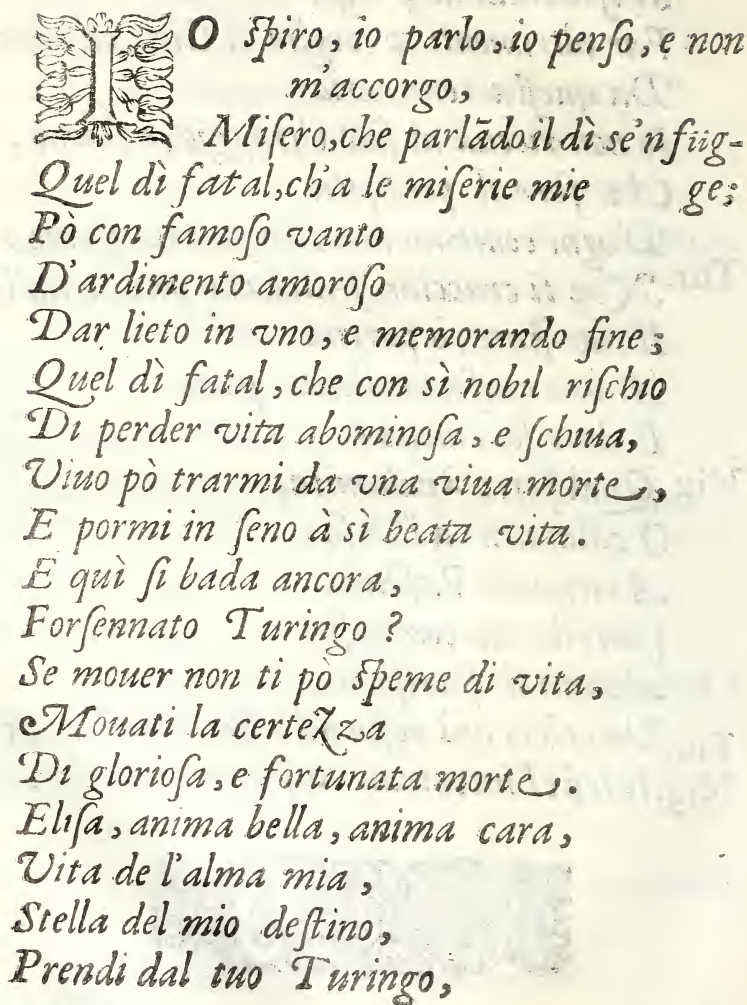 IO ſpiro, io parlo, io penſo, e non
m'accorgo,
Miſero, che parlãdo il dì se'n fùg-
Quel dì fatal, ch'a le miſerie mie ge;
Pò con famoſo vanto
D'ardimento amoroſo
Dar lieto in vno, e memorando fine;
Quel dì fatal, che con sì nobil riſchio
Di perder vita abominoſa, e ſchiua,
Viuo pò trarmi da vna viua morte,
E pormi in ſeno à sì beata vita.
E quì ſi bada ancora,
Forſennato Turingo?
Se mouer non ti pò ſpeme di vita,
Mouati la certezza
Di glorioſa, e fortunata morte.
Eliſa, anima bella, anima cara,
Vita de l'alma mia,
Stella del mio deſtino,
Prendi dal tuo Turingo,